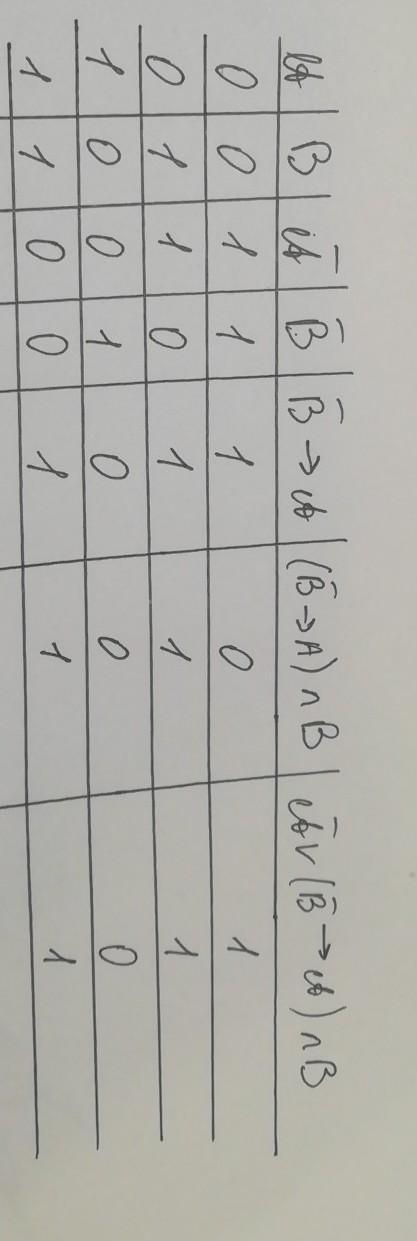 A B Ā B̄ B̄→A (B̄→A)∩B Ā∨(B̄→A)∩B
0 0 1 1 1 0 1
0 1 1 0 1 1 1
1 0 0 1 0 0 0
1 1 0 0 1 1 1